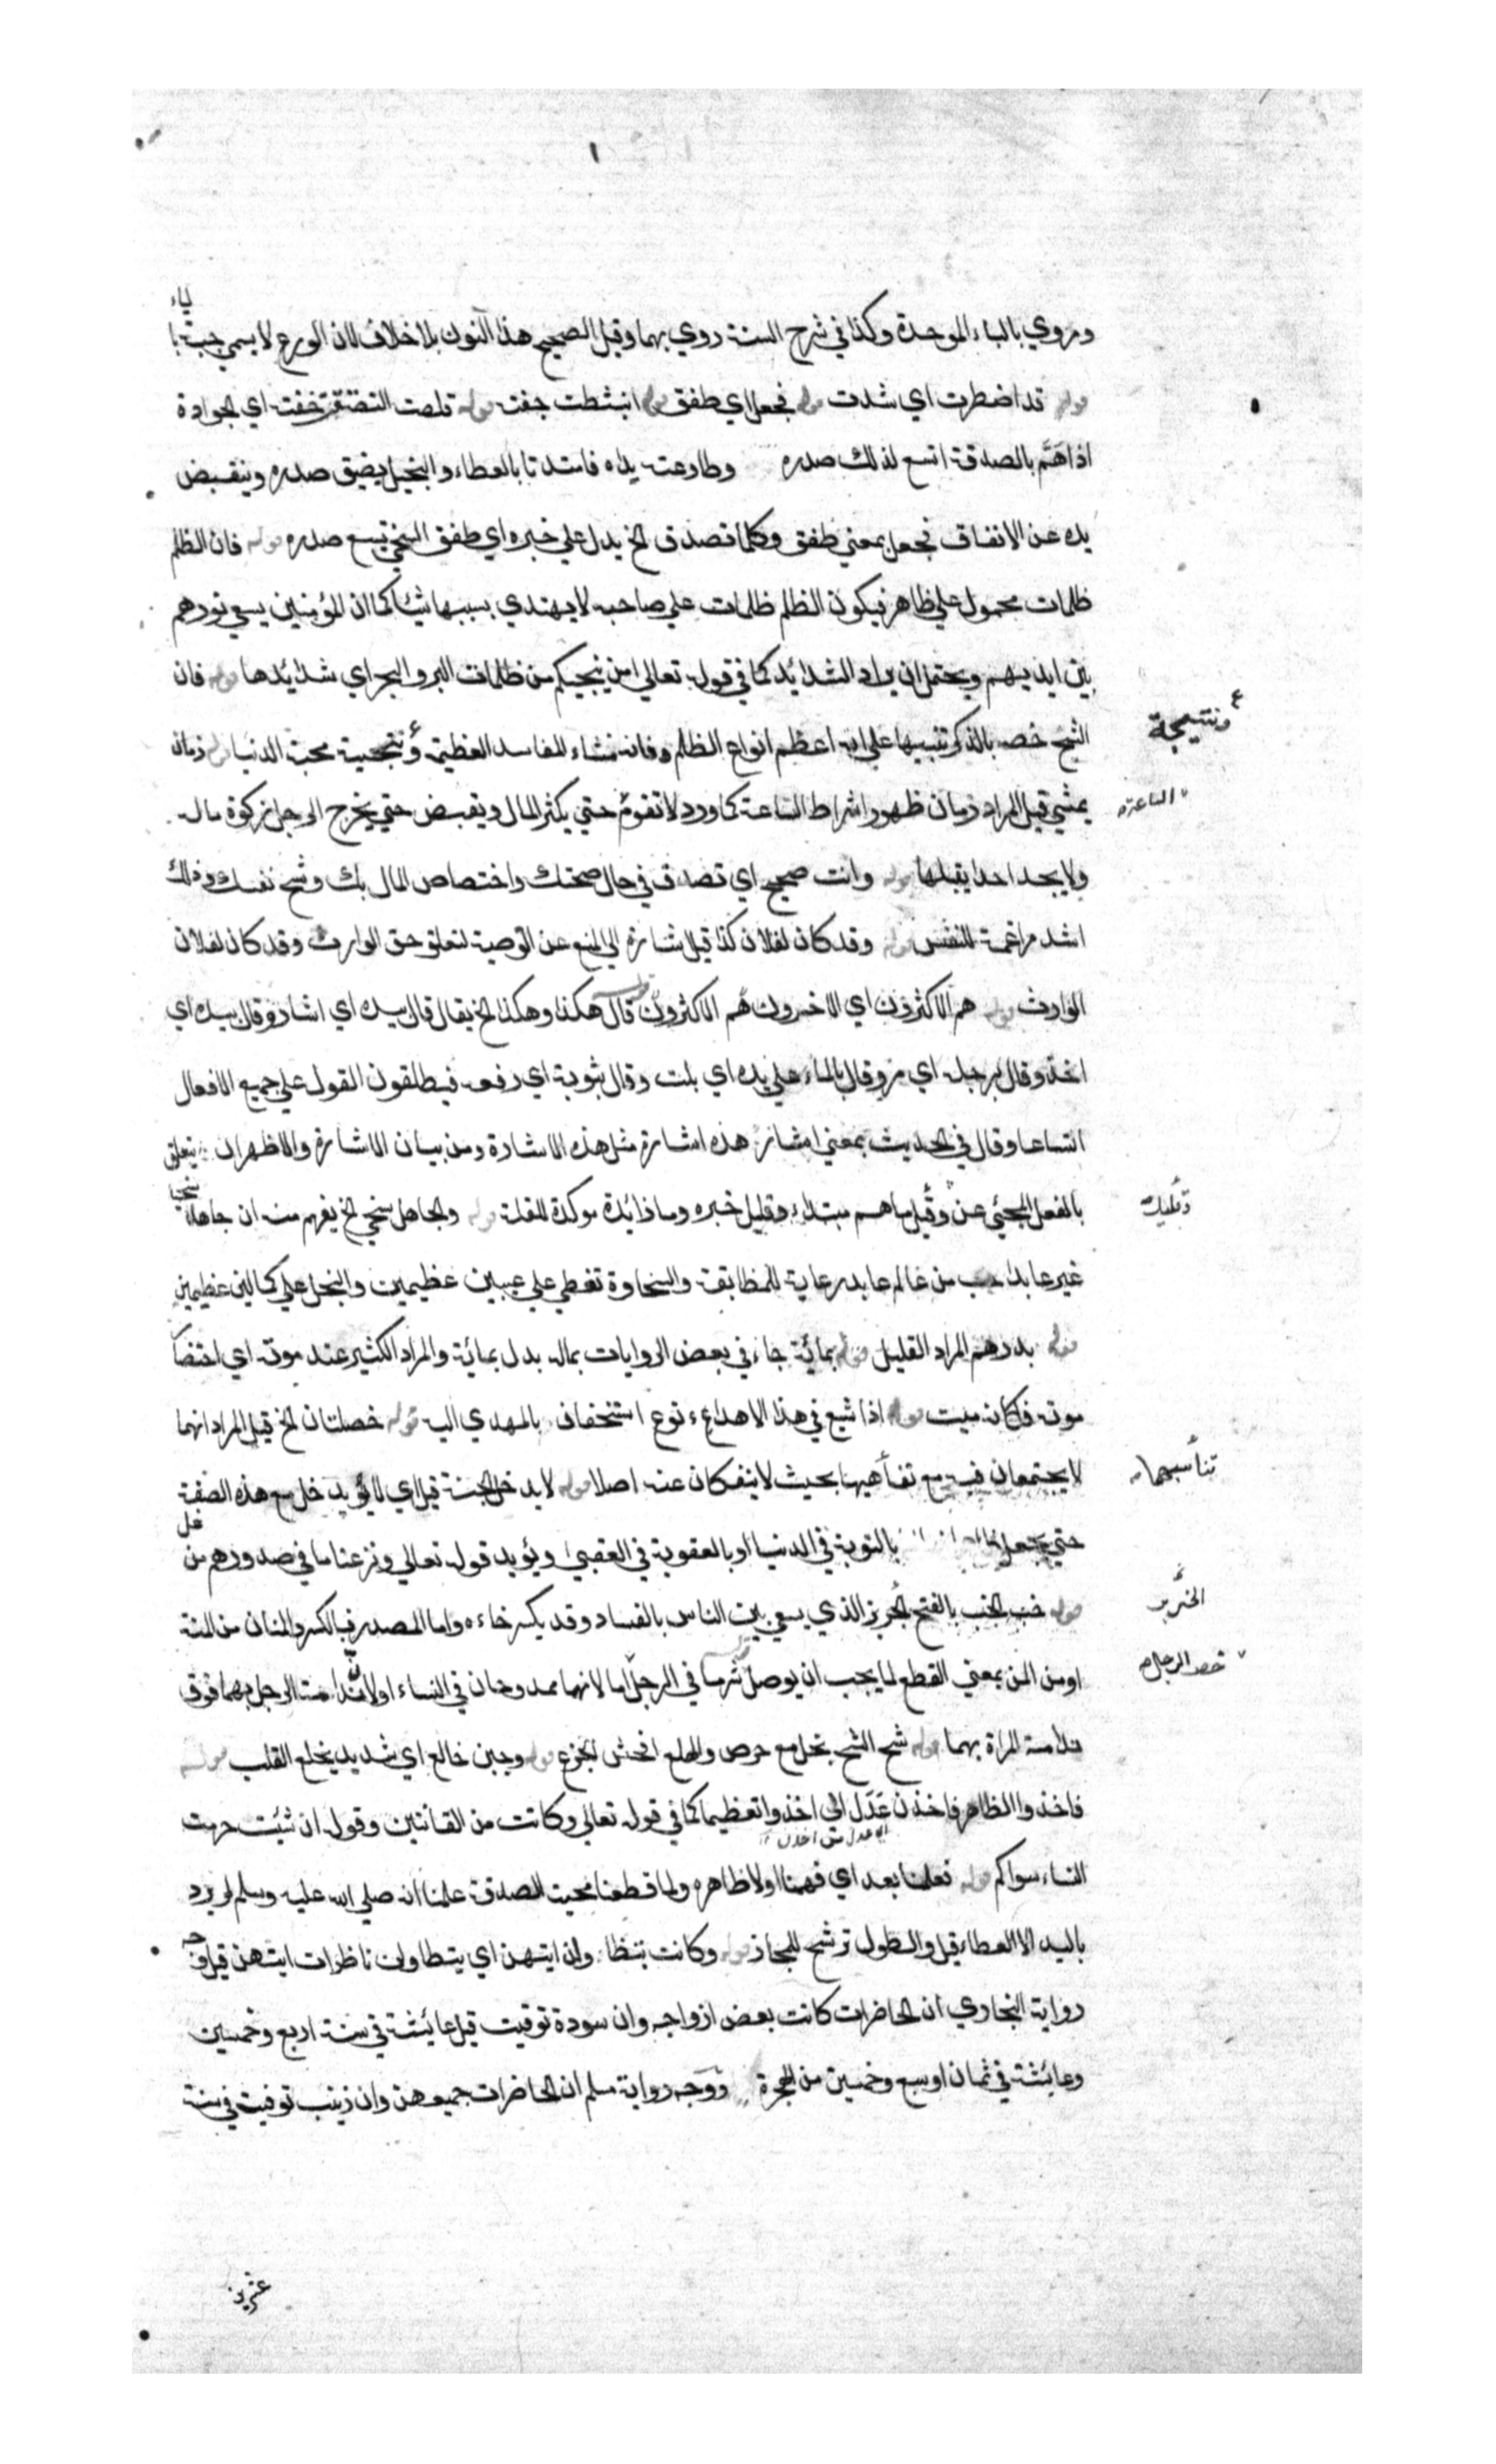 ومروي بالباء الموحدة وكذا في شرح السنة روي بهما وقيل الصحيح هذا النون بلا خلاف لان الورع لا يسمي جبة بالباء
قوله قد اضطرت اي شدت قوله فجعل اي طفق قوله انبسطت جفت قوله قلصت خفت اي الجوادة
اذا هَمَّ بالصدقة اتسع لذلك صدره وطاوعت يداه فامتدتا بالعطاء والبخيل يضيق صدره وينقبض
يده عن الانفاق فجعل بمعني طفق وكلما تصدق الخ يدل علي خبره اي طفق السخي يتسع صدره قوله فان الظلم
ظلمات محمول علي ظاهره فيكون الظلم ظلمات علي صاحبه لا يهتدي بسببها شيئا كما ان المؤمنين يسعي نورهم
بين ايديهم ويحتمل ان يراد الشدائد كما في قوله تعالي امن ينجيكم من ظلمات البر والبحر اي شدائدها قوله فان
الشح خصه بالذكر تنبيها علي انه اعظم انواع الظلم فانه منشاء المفاسد العظيمة ونتيجة محبة الدنيا قوله زمان
ونتيجة
يمشي قيل المراد زمان ظهور اشراط الساعة كما ورد لا تقوم حتي يكثر المال ويفيض حتي يخرج الرجل زكوة ماله
الساعة
ولا يجد احدا يقبلها قوله وانت صحيح اي تصدق في حال صحتك واختصاص المال بك وشح نفسك وذلك
اشد مراغمة للنفس قوله وقد كان لفلان كذا قيل اشارة الي المنع عن الوصية لتعلق حق الوارث وقد كان لفلان
الوارث قوله هم الاكثرون اي الاخسرون هم الاكثرون قوله قال هكذا وهكذا الخ يقال قال بيده اي اشار وقال بيده اي
اخذ وقال برجله اي مر وقال بالماء علي يده اي بلت وقال بثوبه اي رفعه فيطلقون القول علي جميع الافعال
اتساعا وقال في الحديث بمعني اشار هذه اشارة مثل هذه الاشارة ومن بيان الاشارة والاظهر ان يتعلق
بالفعل المجئي عن وقليل ما هم مبتداء وقليل خبره وما زائدة موكدة للقلة قوله ولجاهل سخي الخ يفهم منه ان جاهلا سخيا
غير عابد احب من عالم عابد رعاية للمطابقة والسخاوة تغطي علي عيبين عظيمين والبخل علي كمالين عظيمين
قوله بدرهم المراد القليل قوله بمائة جاء في بعض الروايات بماله بدل بمائة والمراد الكثير عند موته اي احتضار
موته فكانه ميت قوله اذا شبع في هذا الاهداء نوع استخفاف بالمهدي اليه قوله خصلتان الخ قيل المراد انهما
لا يجتمعان فيه مع بحيث لا ينفكان عنه اصلا قوله لا يدخل الجنة قيل اي لا يدخل مع هذه الصفة
حتي يجعل بالتوبة في الدنيا او بالعقوبة في العقبي ويؤيد قوله تعالي ونزعنا ما في صدورهم من غل
قوله خب الخب بالفتح الذي يسعي بين الناس بالفساد وقد يكسر خاءه واما المصدر فبالكسر والمنان من المنة
او من المن بمعني القطع لما يجب ان يوصل قوله شر ما في الرجل اما لانهما ممدوحان في النساء او لان مذامة الرجل بهما فوق
خص الرجل
مذامة المراة بهما قوله شح الشح بخل مع حرص والهلع افحش الجزع قوله وجبن خالع اي شديد يخلع القلب قوله
فاخذوا الظاهر فاخذن عَدَل الي اخذوا تعظيما كما في قوله تعالي وكانت من القانتين وقوله ان شئت حرمت
النساء سواكم قوله فعلمنا بعد اي فهمنا اولا ظاهره ولما قطعنا محبة الصدقة علمنا انه صلي الله عليه وسلم لم يرد
باليد الا العطاء قيل والطول ترشح للمجاز قوله وكانت اي يتطاولن ناظرات ايتهن قيل وجه
رواية البخاري ان الحاضرات كانت بعض ازواجه وان سودة توفيت قبل عائشة في سنة اربع وخمسين
وعائشة في ثمان او سبع وخمسين من الهجرة ووجه رواية مسلم ان الحاضرات جميعهن وان زينب توفيت في سنة